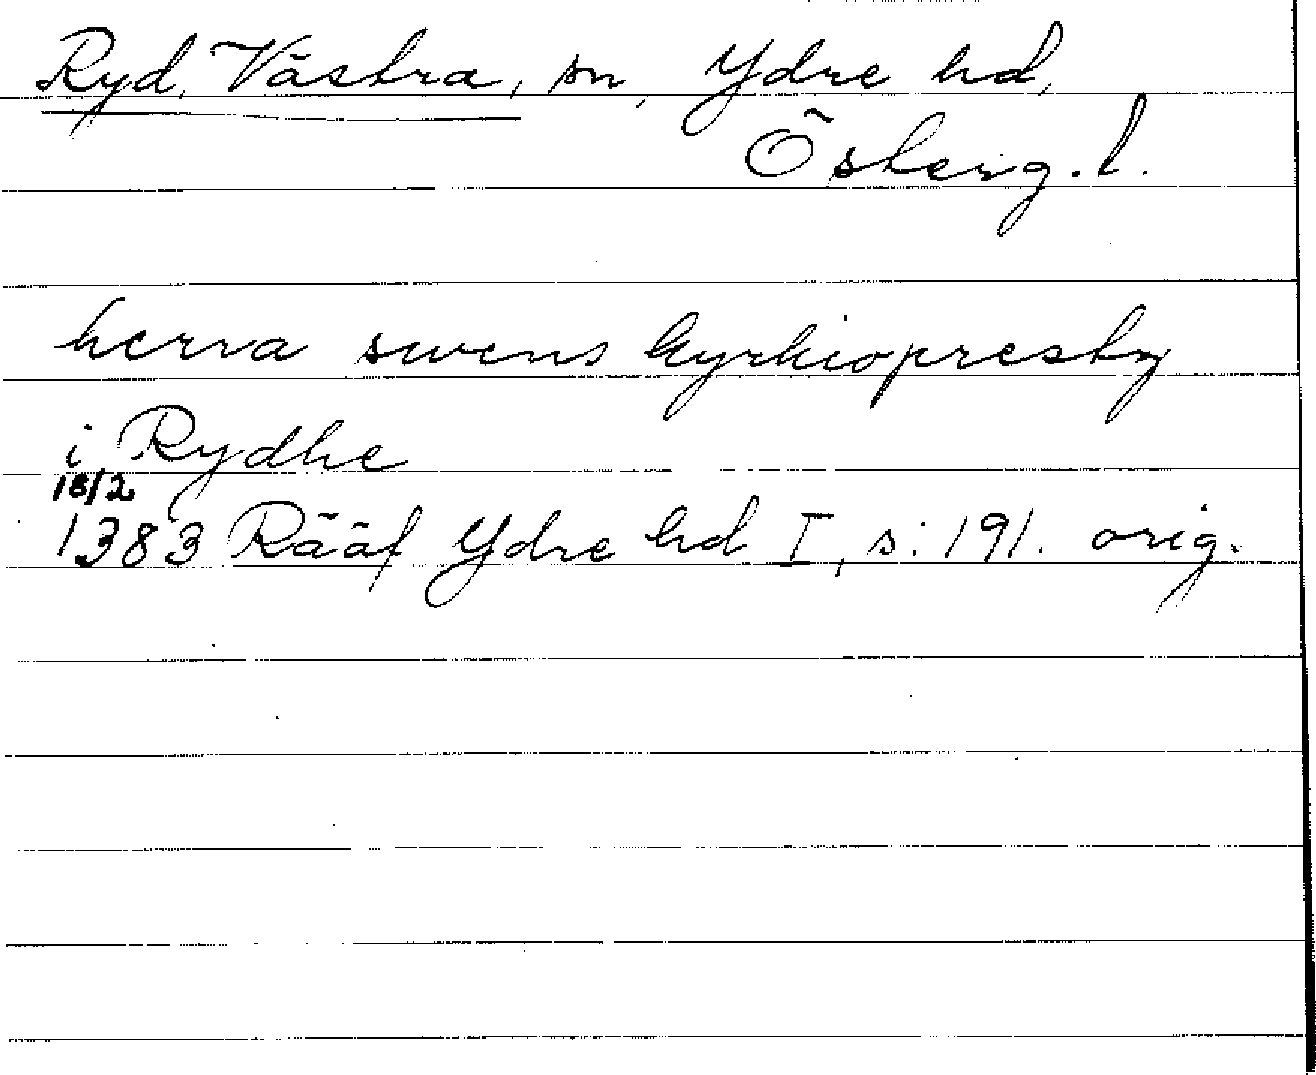 Ryd, Västra, sn, Ydre hd,
Österg. l.
herra swens kyrkiopresty
i Rydhe
18/2
1383 Rääf Ydre hd I, s. 191. orig.